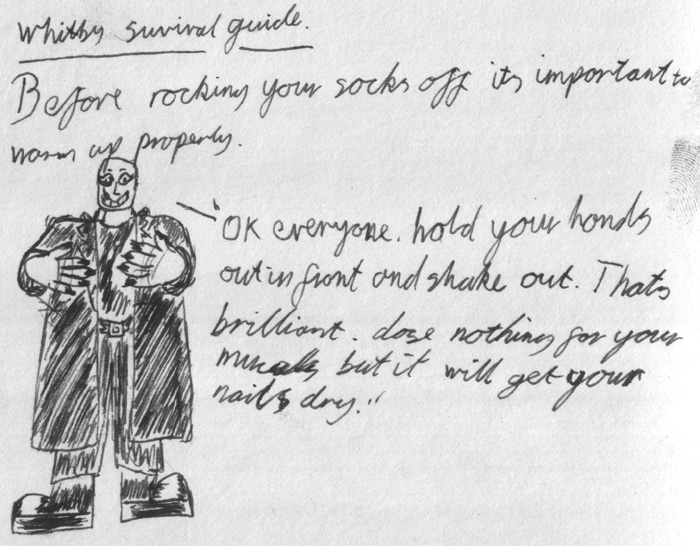 Whitby survival guide.
Before rocking your socks off its important to
warm up properly.
"OK everyone. hold your hands
out in front and shake out. Thats
brilliant. dose nothing for your
mucals but it will get your
nails dry."